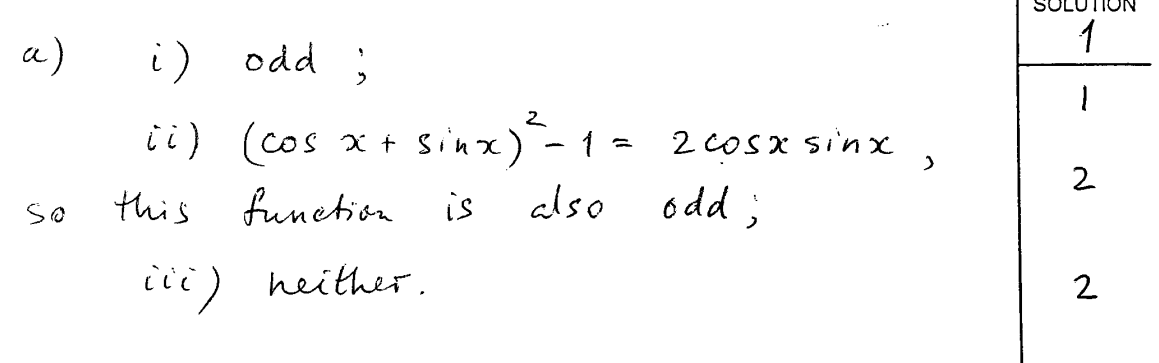 SOLUTION
1
a) i) odd ; 1
ii) (cos x + sin x)² - 1 = 2 cos x sin x , 2
so this function is also odd ;
iii) neither. 2